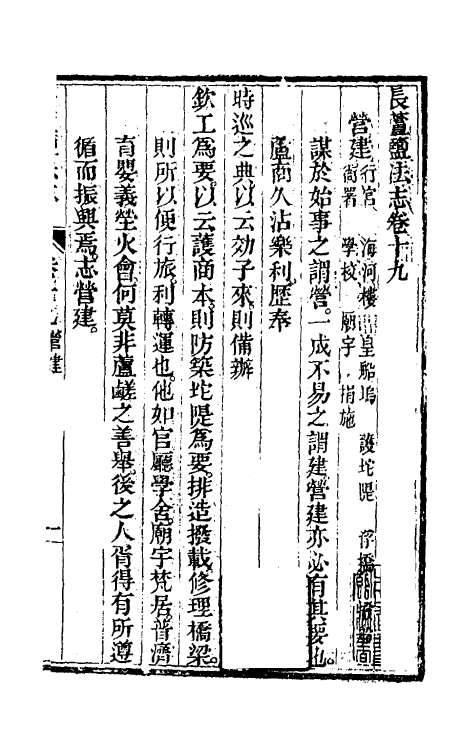 長蘆鹽法志卷十九
營建 行宮 海河樓 皇船塢 護坨隄 浮橋
衙署 學校 廟宇 捐施
謀於始事之謂營一成不易之謂建營建亦必有其要也
蘆商久沾樂利歷奉
時巡之典以云効子來則備辦
欽工為要以云護商本則防築坨隄為要排造撥載修理橋梁
則所以便行旅利轉運也他如官廳學舍廟宇梵居普濟
育嬰義塋火會何莫非蘆鹾之善舉後之人胥得有所遵
循而振興焉志營建
營建
一